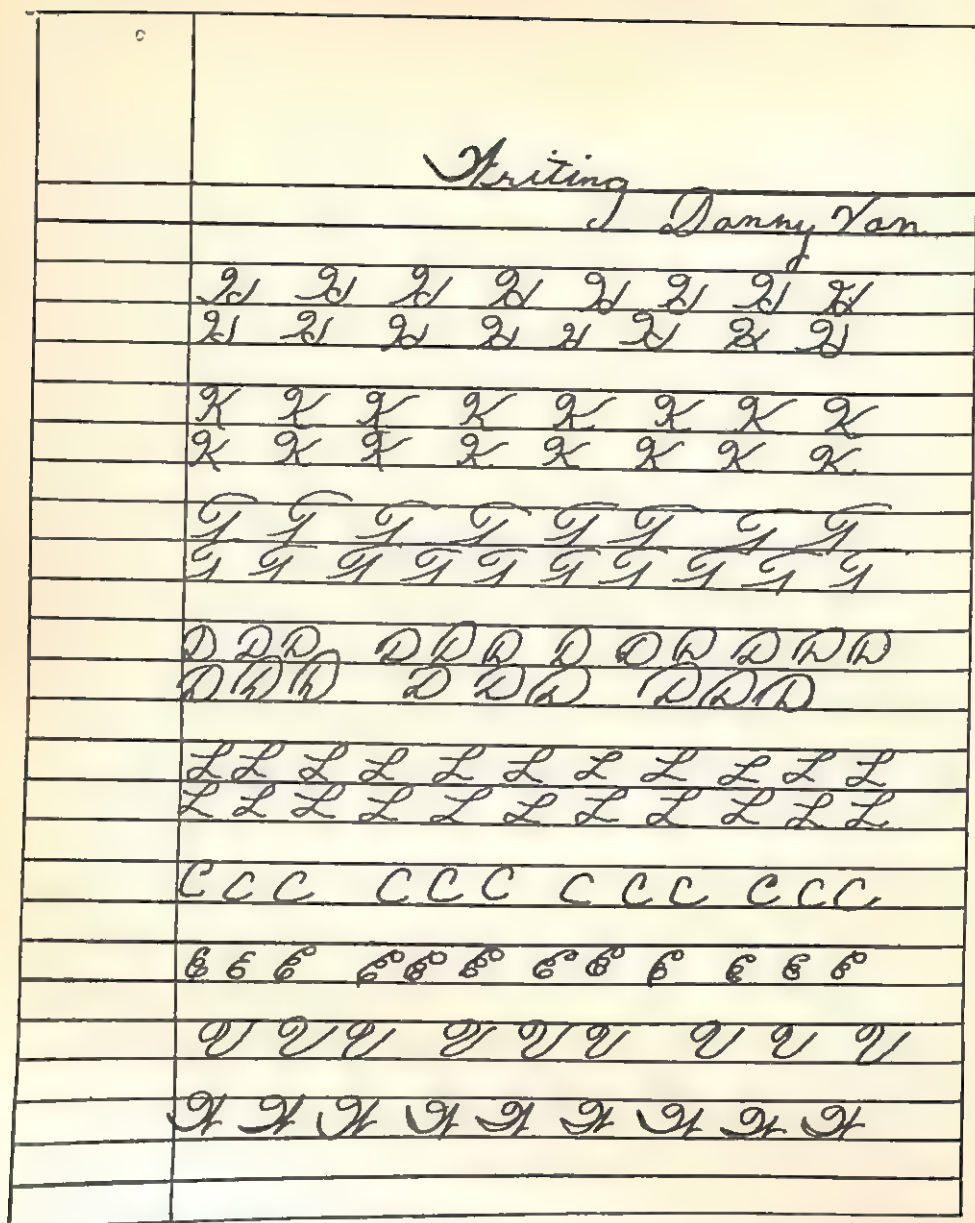 Writing
Danny Yan
H H H H H H H H
H H H H H H H H
K K K K K K K K
K K K K K K K K
T T T T T T T T
T T T T T T T T T T
D D D D D D D D D D D D
D D D D D D D D D
L L L L L L L L L L L
L L L L L L L L L L L
C C C C C C C C C C C C
E E E E E E E E E E E E
U U U U U U U U U
W W W W W W W W W